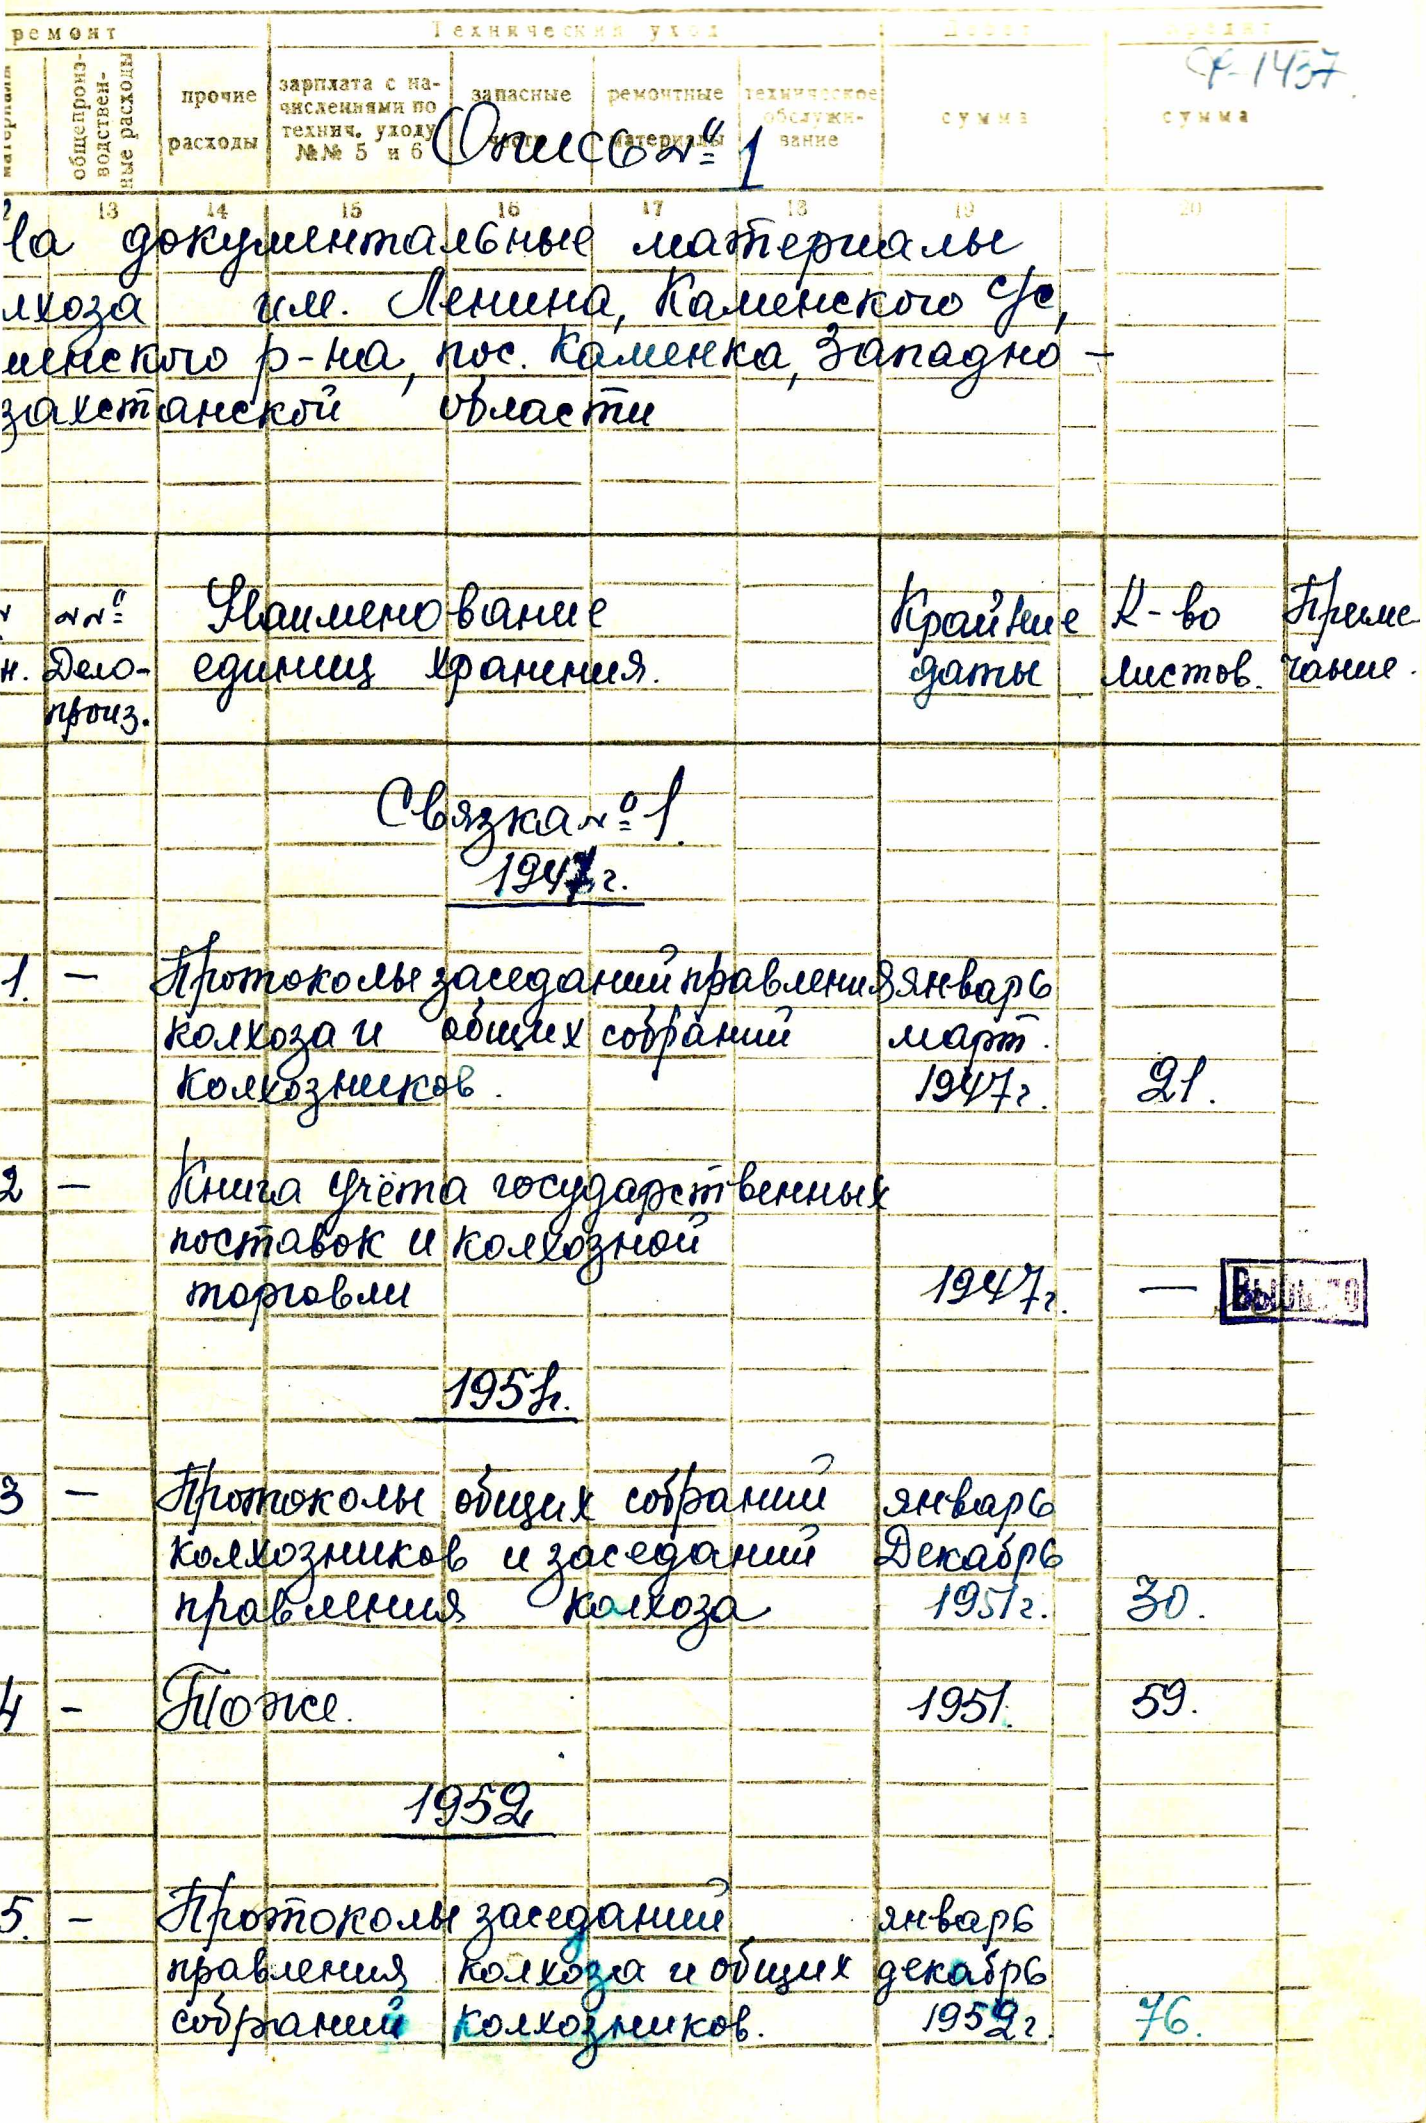 ремонт Технический уход Дебет Кредит
ф-1437
материалы общепроизводственные расходы прочие расходы зарплата с начислениями по технич. уходу №№ 5 и 6 запасные части ремонтные материалы техническое обслуживание сумма сумма
Опись № 1
2 13 14 15 16 17 18 19 20
На документальные материалы
лхоза им. Ленина, Каменского с/с,
менского р-на, пос. Каменка, Западно-
захстанской области
№№ Наименование Крайние К-во Приме-
н. Дело- единиц хранения. даты листов. чание.
произ.
Связка № 1.
1947 г.
1. — Протоколы заседаний правления январь
колхоза и общих собраний март.
колхозников. 1947 г. 21.
2 — Книга учёта государственных
поставок и колхозной
торговли 1947 г. — Выбыло
1951 г.
3 — Протоколы общих собраний январь
колхозников и заседаний Декабрь
правления колхоза 1951 г. 30.
4 - Тоже. 1951. 59.
1952
5. - Протоколы заседаний январь
правления колхоза и общих декабрь
собраний колхозников. 1952 г. 76.